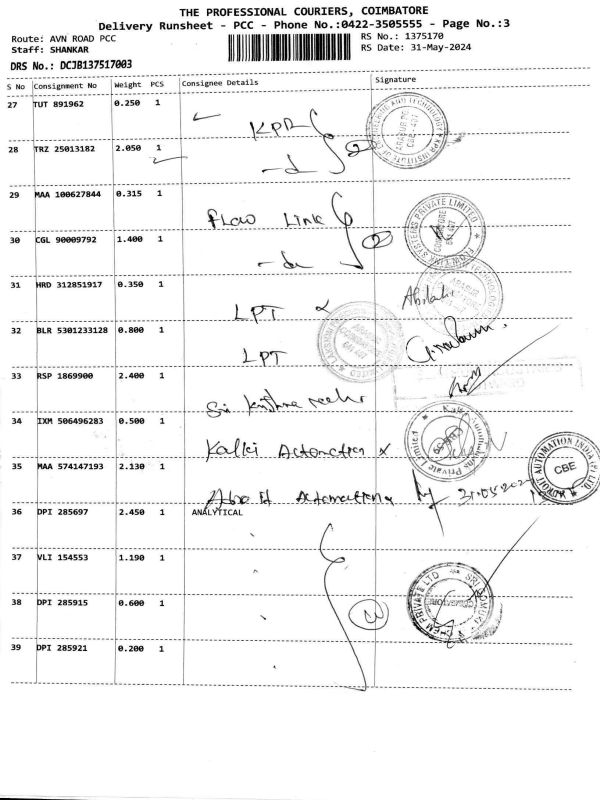 THE PROFESSIONAL COURIERS, COIMBATORE
Delivery Runsheet - PCC - Phone No.:0422-3505555 - Page No.:3
Route: AVN ROAD PCC RS No.: 1375170
Staff: SHANKAR RS Date: 31-May-2024
DRS No.: DCJB137517003
S No Consignment No Weight PCS Consignee Details Signature
27 TUT 891962 0.250 1 KPR
28 TRZ 25013182 2.050 1 -do
29 MAA 100627844 0.315 1 Flow Link
30 CGL 90009792 1.400 1 -do
31 HRD 312851917 0.350 1 LPT
32 BLR 5301233128 0.800 1 LPT
33 RSP 1869900 2.400 1 Sri Krishna
34 IXM 506496283 0.500 1 Kalki Automation
35 MAA 574147193 2.130 1 Automation 31.05.202
36 DPI 285697 2.450 1 ANALYTICAL
37 VLI 154553 1.190 1
38 DPI 285915 0.600 1
39 DPI 285921 0.200 1